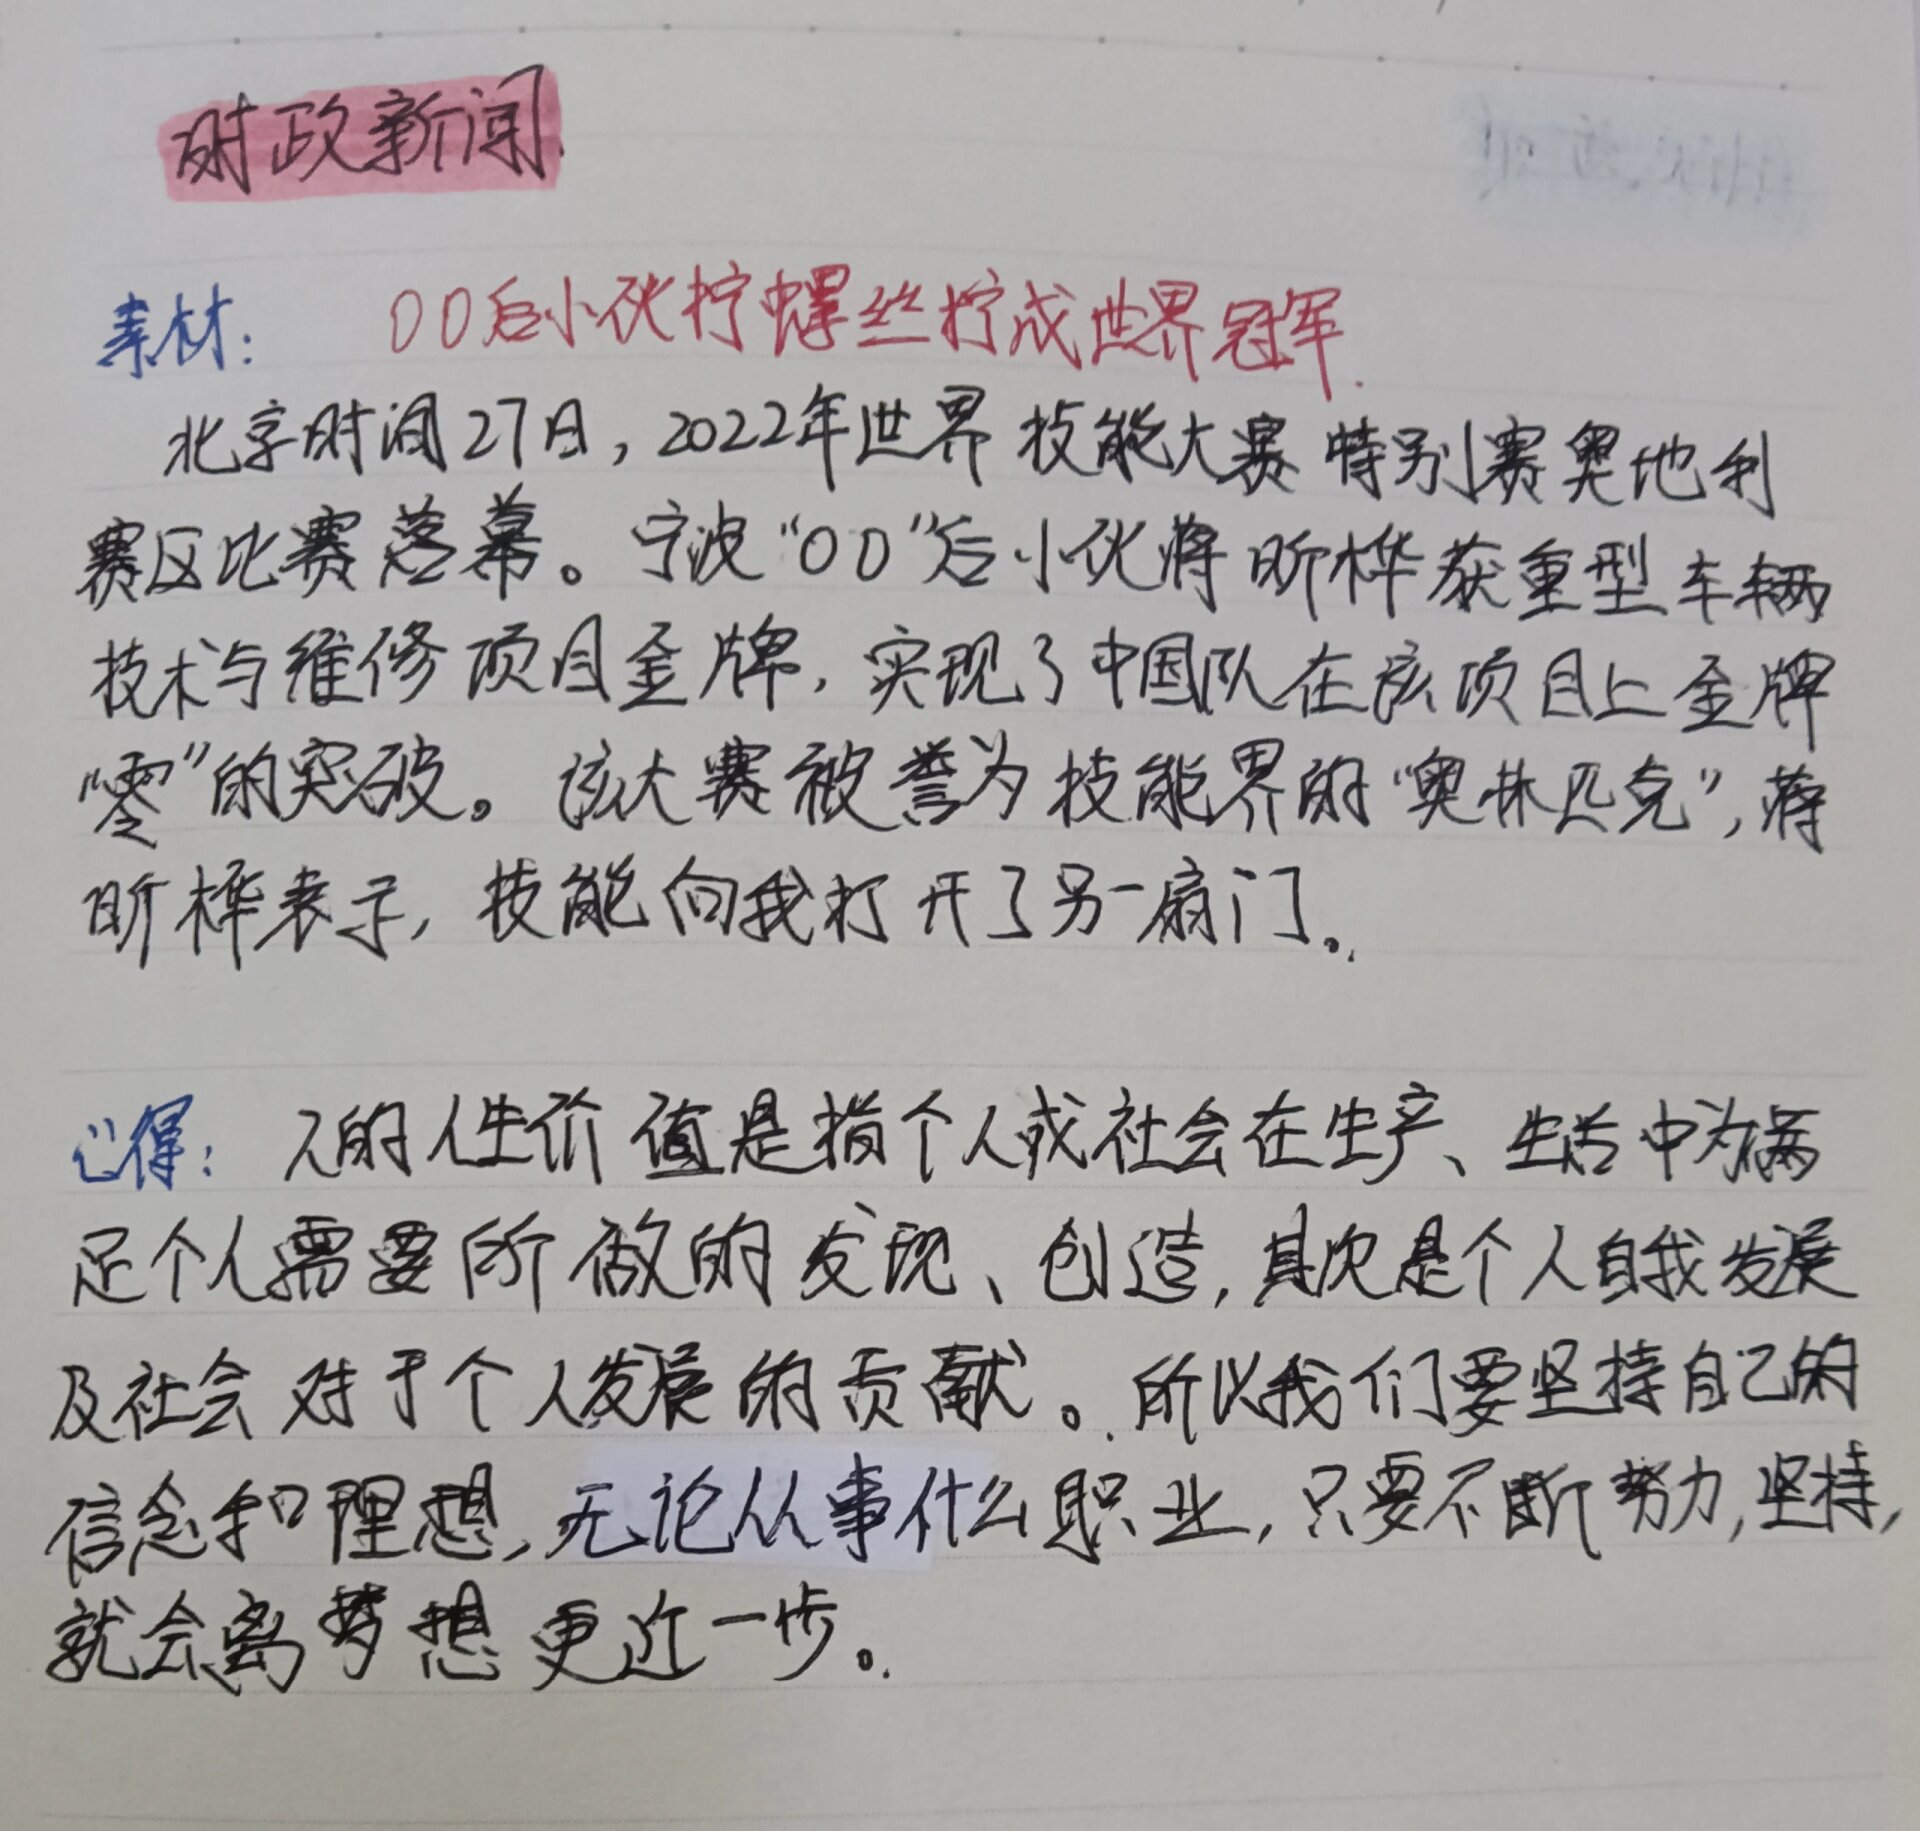 时政新闻.
素材： 00后小伙拧螺丝拧成世界冠军.
北京时间27日，2022年世界技能大赛特别赛奥地利
赛区比赛落幕。宁波“00”后小伙蒋昕桦获重型车辆
技术与维修项目金牌，实现了中国队在该项目上金牌
“零”的突破。该大赛被誉为技能界的“奥林匹克”，蒋
昕桦表示，技能向我打开了另一扇门。
心得：人的人生价值是指个人或社会在生产、生活中为满
足个人需要所做的发现、创造，其次是个人自我发展
及社会对于个人发展的贡献。所以我们要坚持自己的
信念和理想，无论从事什么职业，只要不断努力，坚持，
就会离梦想更近一步。